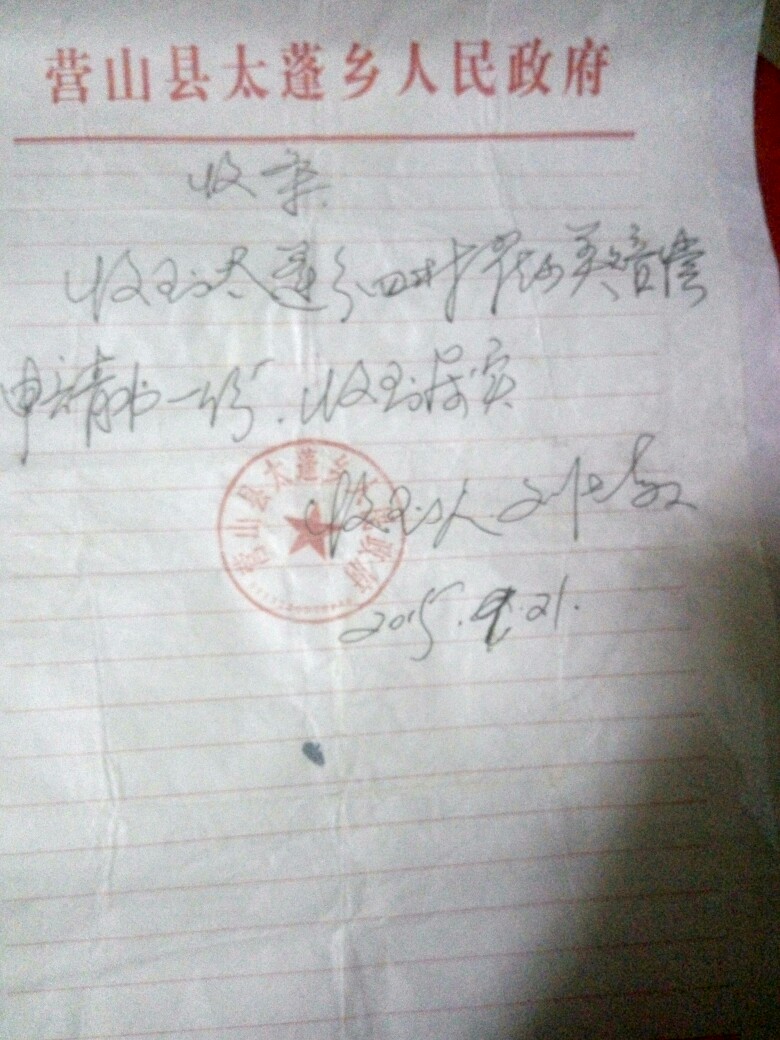 营山县太蓬乡人民政府
收条
收到太蓬乡四村
申请书一份。收到属实
营山县太蓬乡人民政府
收到人 刘
2015.9.21.